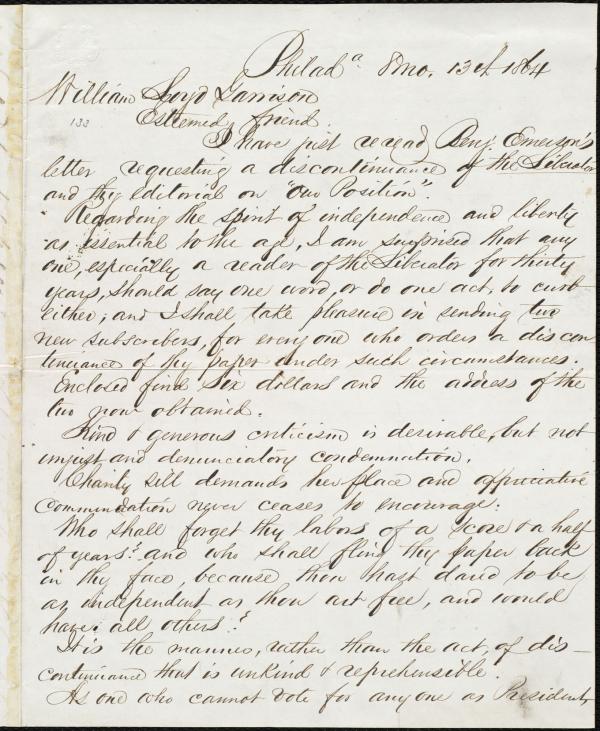 Philada. 8mo. 13th 1864
William Loyd Garrison
133
Esteemed friend.
I have just reread Benj. Emerson's
letter requesting a discontinuance of the Liberator
and thy editorial on "Our Position".
Regarding the spirit of independence and liberty
as essential to the age, I am surprised that any
one, especially a reader of the Liberator for thirty
years, should say one word, or do one act, to curb
either; and I shall take pleasure in sending two
new subscribers, for every one who orders a discon-
tinuance of thy paper under such circumstances.
Enclosed find six dollars and the address of the
two now obtained.
Kind & generous criticism is desirable, but not
unjust and denunciatory condemnation.
Charity still demands her place and appreciative
commendation never ceases to encourage.
Who shall forget thy labors of a score & a half
of years? and who shall fling thy paper back
in thy face, because thou hast dared to be
as independent as thou art free, and would
have all others?
It is the manner, rather than the act, of dis-
continuance that is unkind & reprehensible.
As one who cannot vote for any one as President,